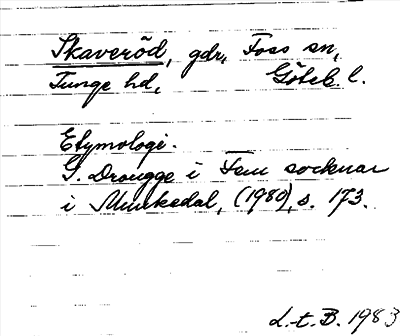 Skaveröd, gdr, Foss sn,
Tunge hd, Göteb. l.
Etymologi.
G. Drougge i Fem socknar
i Munkedal, (1980), s. 173.
L.t.B. 1983